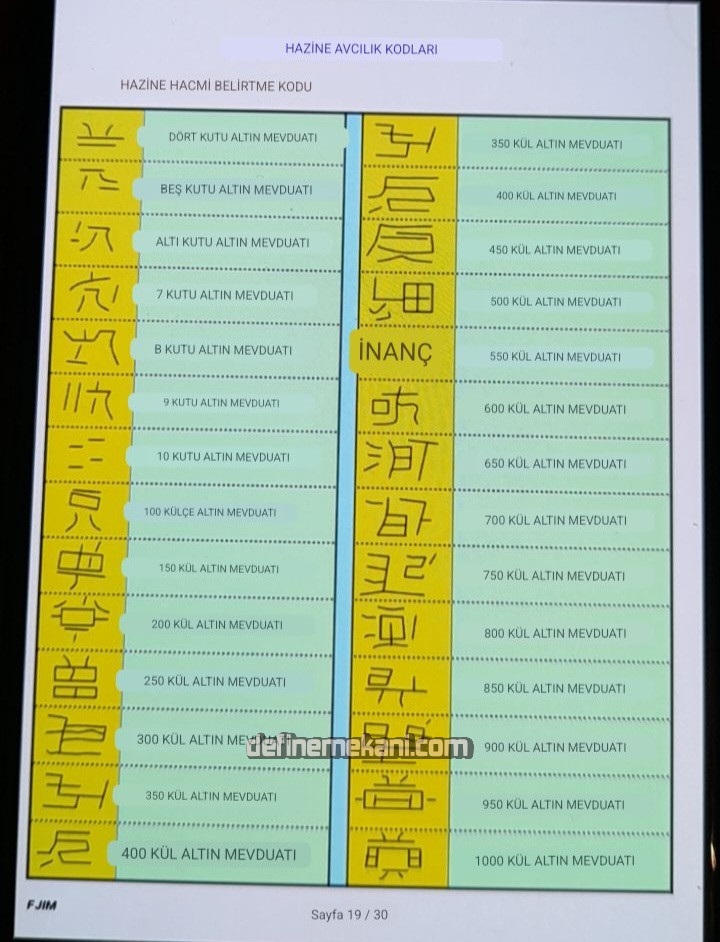 HAZİNE AVCILIK KODLARI
HAZİNE HACMİ BELİRTME KODU
DÖRT KUTU ALTIN MEVDUATI
BEŞ KUTU ALTIN MEVDUATI
ALTI KUTU ALTIN MEVDUATI
7 KUTU ALTIN MEVDUATI
B KUTU ALTIN MEVDUATI
9 KUTU ALTIN MEVDUATI
10 KUTU ALTIN MEVDUATI
100 KÜLÇE ALTIN MEVDUATI
150 KÜL ALTIN MEVDUATI
200 KÜL ALTIN MEVDUATI
250 KÜL ALTIN MEVDUATI
300 KÜL ALTIN MEVDUATI
350 KÜL ALTIN MEVDUATI
400 KÜL ALTIN MEVDUATI
350 KÜL ALTIN MEVDUATI
400 KÜL ALTIN MEVDUATI
450 KÜL ALTIN MEVDUATI
500 KÜL ALTIN MEVDUATI
İNANÇ
550 KÜL ALTIN MEVDUATI
600 KÜL ALTIN MEVDUATI
650 KÜL ALTIN MEVDUATI
700 KÜL ALTIN MEVDUATI
750 KÜL ALTIN MEVDUATI
800 KÜL ALTIN MEVDUATI
850 KÜL ALTIN MEVDUATI
900 KÜL ALTIN MEVDUATI
950 KÜL ALTIN MEVDUATI
1000 KÜL ALTIN MEVDUATI
definemekani.com
FJIM
Sayfa 19 / 30